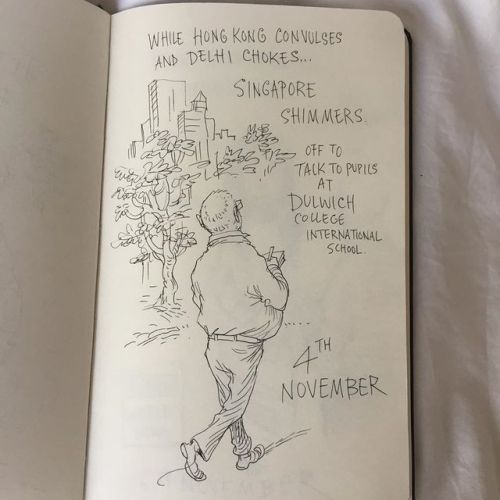 WHILE HONG KONG CONVULSES
AND DELHI CHOKES...
SINGAPORE
SHIMMERS.
OFF TO
TALK TO PUPILS
AT
DULWICH
COLLEGE
INTERNATIONAL
SCHOOL.
4TH
NOVEMBER